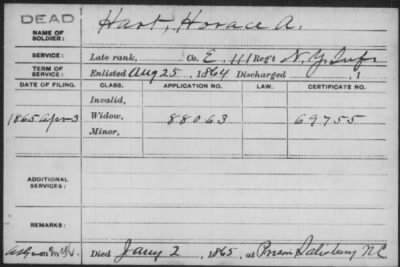 DEAD
NAME OF SOLDIER: Hart, Horace A.
SERVICE: Late rank, Co. E, 111 Reg't N.Y. Infr
TERM OF SERVICE: Enlisted Aug 25, 1864 Discharged , 1
DATE OF FILING. CLASS. APPLICATION NO. LAW. CERTIFICATE NO.
Invalid,
1865 Apr 3 Widow, 88063 69755
Minor,
ADDITIONAL SERVICES:
REMARKS:
Died Jany 2, 1865, at Prison Salisbury NC